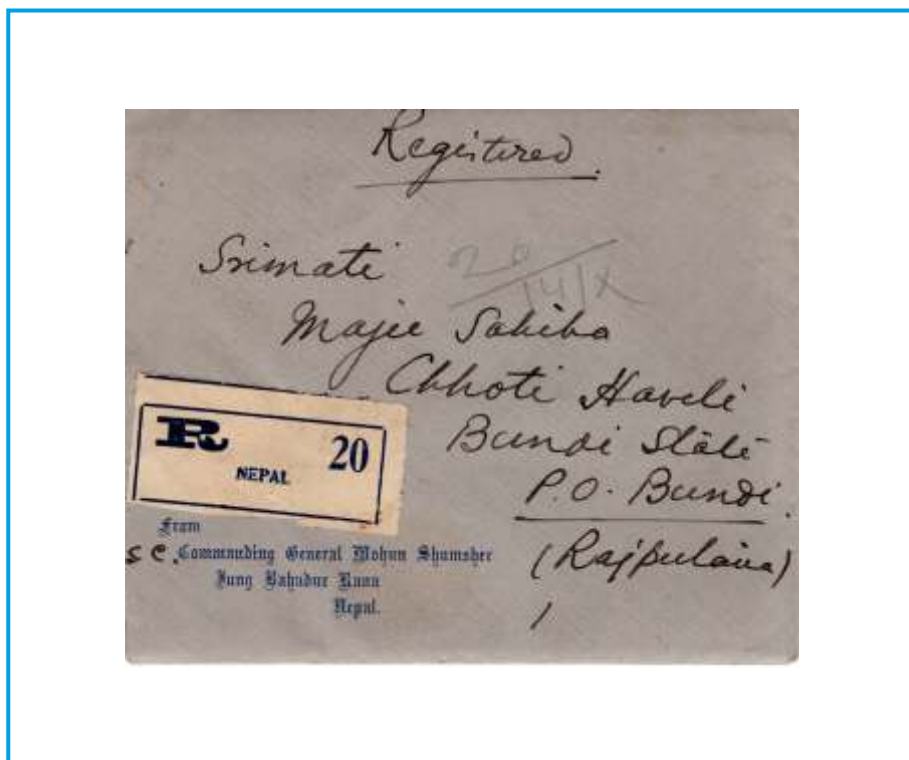 Registered.
Srimati
20/14/X
Majee Sahiba
Chhoti Haveli
Bundi State
P.O. Bundi.
(Rajputana)
R 20
NEPAL
From
S C. Commanding General Mohun Shumsher
Jung Bahadur Rana
Nepal.